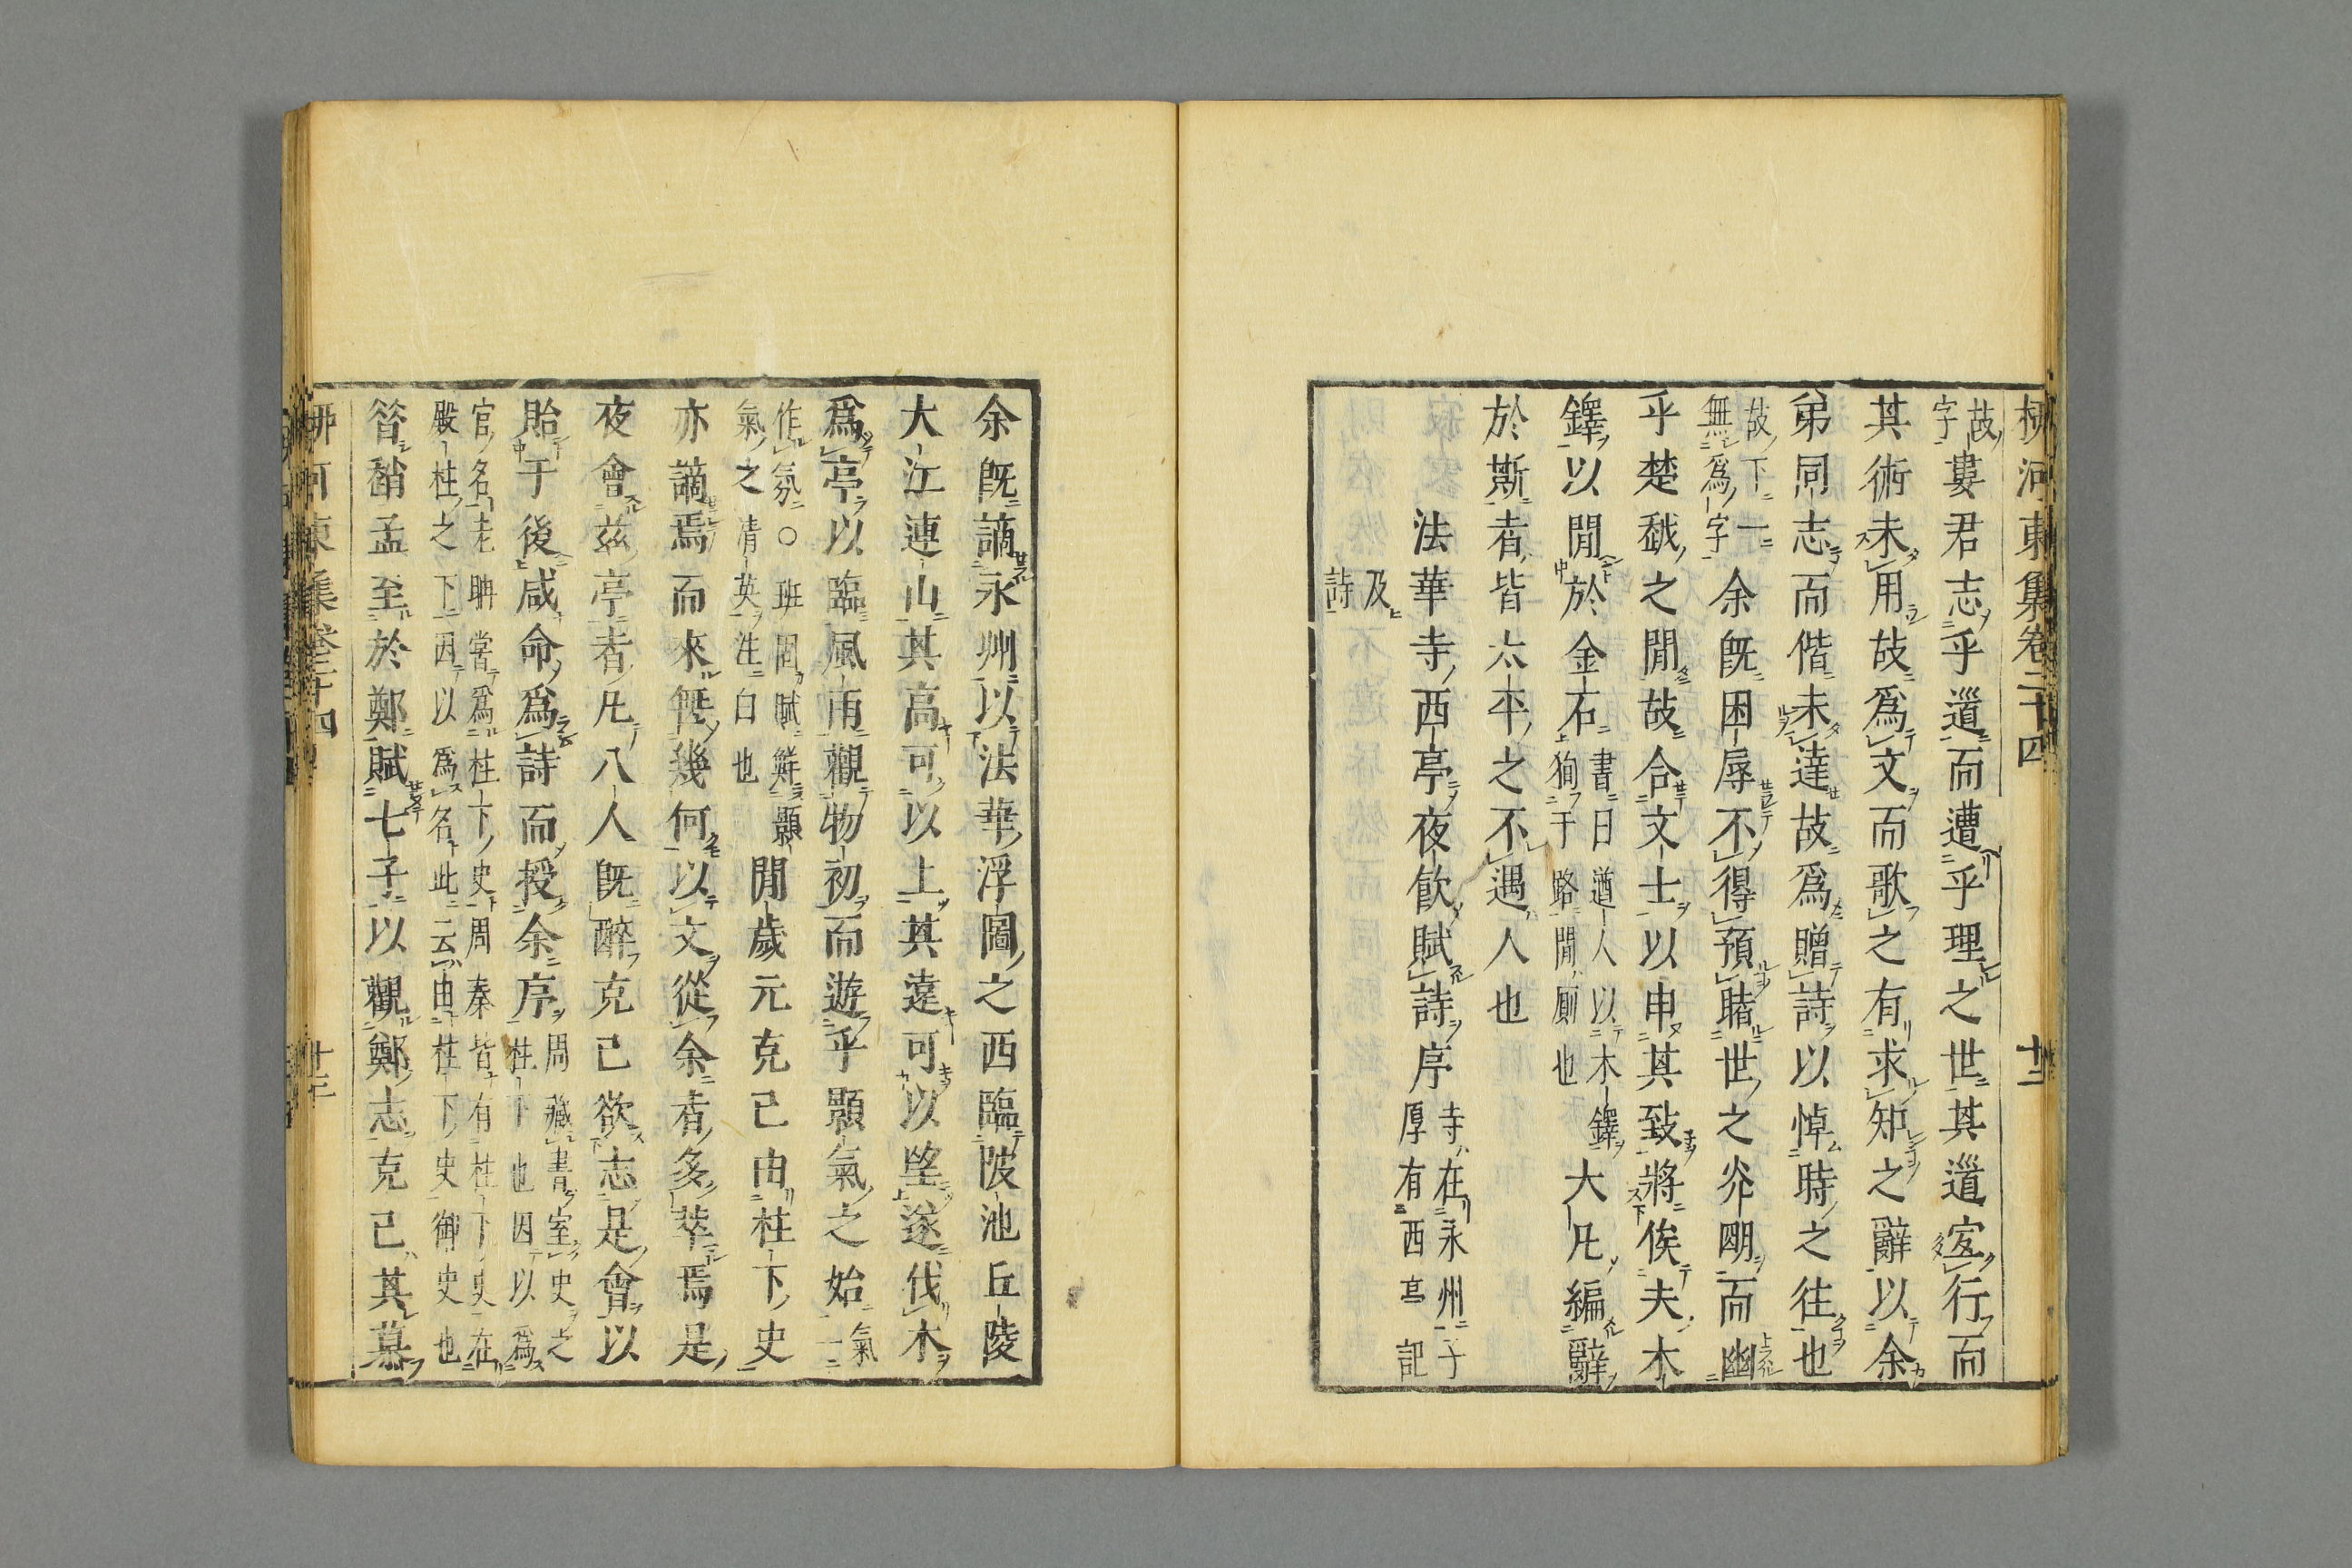 柳河東集卷二十四　十二
故字婁君志乎道而遭乎理之世其道宜行而
其術未用故爲文而歌之有求知之辭以余
弟同志而偕未達故爲贈詩以悼時之往也
故下一無爲字余既困辱不得預睹世之光明而幽
乎楚越之閒故合文士以申其致將俟夫木
鐸以閒於金石書曰遒人以木鐸狥于路閒厠也大凡編辭
於斯者皆太平之不遇人也
法華寺西亭夜飮賦詩序寺在永州子厚有西亭記
及詩
余既謫永州以法華浮圖之西臨陂池丘陵
大江連山其高可以上其遠可以望遂伐木
爲亭以臨風雨觀物初而遊乎顥氣之始氣一
作氛○班固賦鮮顥氣之清英注白也閒歲元克己由柱下史
亦謫焉而來無幾何以文從余者多萃焉是
夜會茲亭者凡八人既醉克己欲志是會以
貽于後咸命爲詩而授余序周藏書室史之柱下也因以爲
官名老聃嘗爲柱下史周秦皆有柱下史在殿柱之下因以爲名此云由柱下史御史也
昝趙孟至於鄭賦七子以觀鄭志克己其慕
柳河東集卷二十四　十二